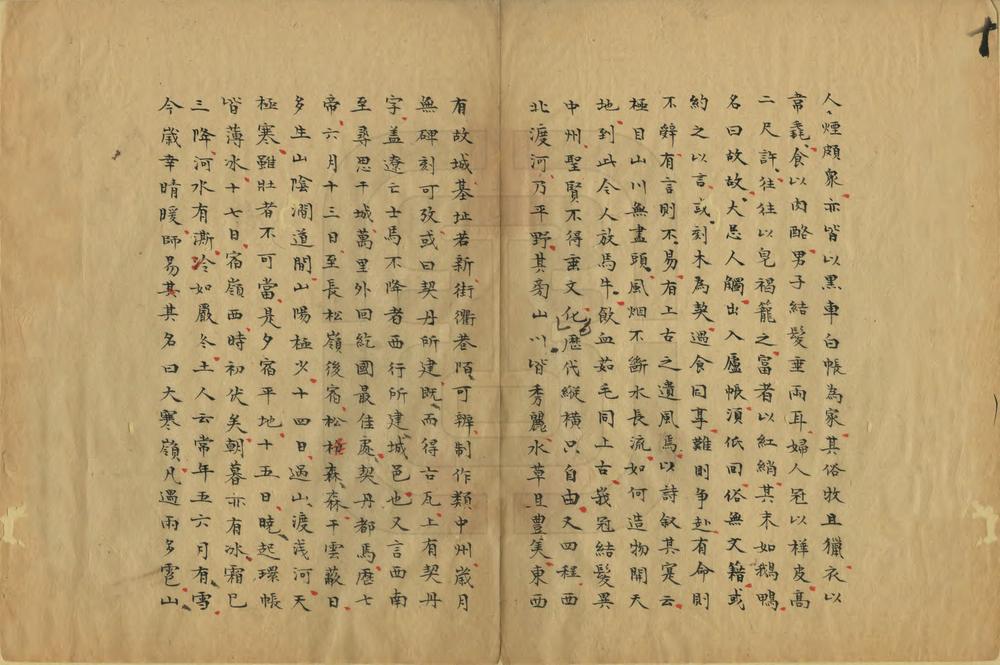 十
人煙頗衆亦皆以黑車白帳為家其俗牧且獵衣以
韋毳食以肉酪男子結髮垂兩耳婦人冠以樺皮高
二尺許往往以皂褐籠之富者以紅綃其末如鵝鴨
名曰故故大忌人觸出入廬帳須低回俗無文籍或
約之以言或刻木為契遇食同享難則争赴有命則
不辤有言則不易有上古之遺風焉以詩叙其寔云
極目山川無盡頭風烟不斷水長流如何造物開天
地到此令人放馬牛飲血茹毛同上古峩冠結髮異
中州聖賢不得垂文化歷代縱橫只自由又四程西
北渡河乃平野其旁山川皆秀麗水草且豊美東西
有故城基址若新街衢巷陌可辨制作類中州歲月
無碑刻可攷或曰契丹所建既而得古瓦上有契丹
字盖遼亡士馬不降者西行所建城邑也又言西南
至尋思干城萬里外回紇國最佳處契丹都焉歷七
帝六月十三日至長松嶺後宿松栝森森干雲蔽日
多生山陰澗道間山陽極少十四日過山渡浅河天
極寒雖壯者不可當是夕宿平地十五日曉起環帳
皆薄冰十七日宿嶺西時初伏矣朝暮亦有冰霜已
三降河水有澌冷如嚴冬土人云常年五六月有雪
今歲幸晴暖師易其其名曰大寒嶺凡遇雨多雹山